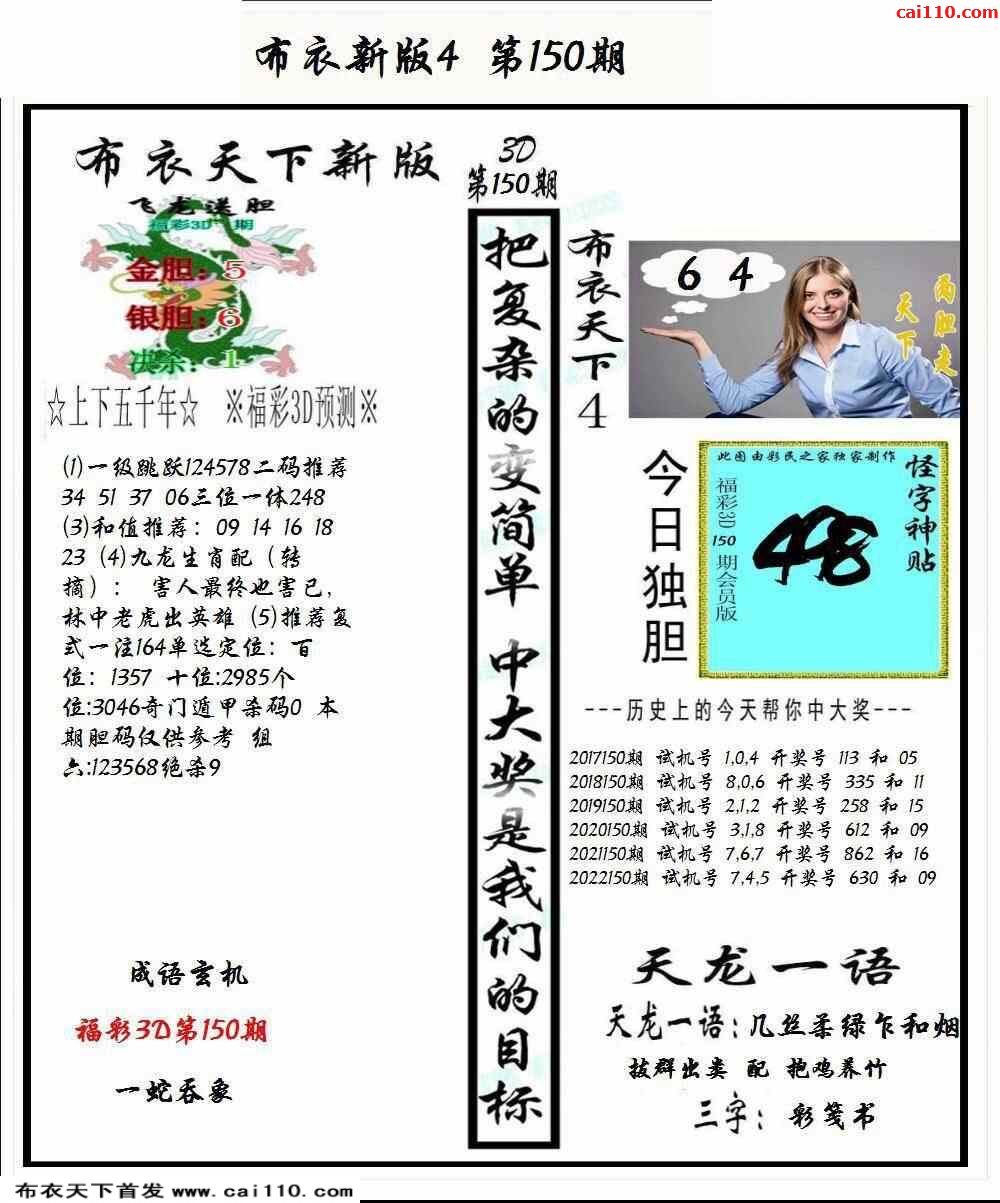 cai110.com
布衣新版4 第150期
布衣天下新版
飞龙送胆
福彩3D 期
金胆：5
银胆：6
决杀：1
☆上下五千年☆ ※福彩3D预测※
(1)一级跳跃124578二码推荐
34 51 37 06三位一体248
(3)和值推荐：09 14 16 18
23 (4)九龙生肖配（转
摘）： 害人最终也害己，
林中老虎出英雄 (5)推荐复
式一注164单选定位：百
位：1357 十位:2985个
位:3046奇门遁甲杀码0 本
期胆码仅供参考 组
六:123568绝杀9
成语玄机
福彩3D第150期
一蛇吞象
3D
第150期
把复杂的变简单 中大奖是我们的目标
布衣天下4
6 4
两胆走
天下
今日独胆
此图由彩民之家独家制作
怪字神贴
福彩3D150期会员版
48
---历史上的今天帮你中大奖---
2017150期 试机号 1,0,4 开奖号 113 和 05
2018150期 试机号 8,0,6 开奖号 335 和 11
2019150期 试机号 2,1,2 开奖号 258 和 15
2020150期 试机号 3,1,8 开奖号 612 和 09
2021150期 试机号 7,6,7 开奖号 862 和 16
2022150期 试机号 7,4,5 开奖号 630 和 09
天龙一语
天龙一语：几丝柔绿乍和烟
拔群出类 配 抱鸡养竹
三字： 彩笺书
布衣天下首发 www.cai110.com